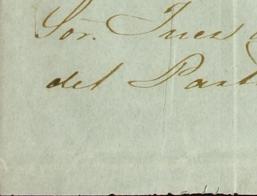 Sor. Juez
del Part